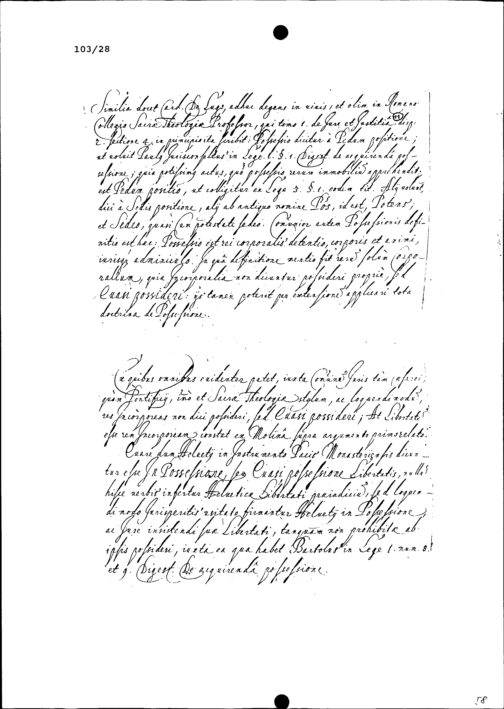 103/28
Similia docet Card. De Lugo, adhuc degens in vivis, et olim in Romano
Collegio Sacrae Theologiae Professor, qui tomo 1. de Jure et Justitia disp.
2. sectione 2. in principio ita scribit: Possessio dicitur à Pedum positione;
ut voluit Paulus Jurisconsultus in Lege 1. §. 1. Digest de acquirenda pos-
sessione; quia potissimus actus, quo possessio rerum immobilium apprehenditur,
est Pedum positio, ut colligitur ex Lege 3. §. 1. eodem tit. Alij volunt,
dici à Sedis positione, alij ab antiquo nomine Pos, id est, Potens;
et Sedeo, quasi cum potestate sedeo. Communior autem Possessionis defi-
nitio est haec: Possessio est rei corporalis detentio, corporis et animi,
iurisque adminiculo. In qua definitione mentio fit rerum solum corpo-
ralium, quia Incorporalia non dicuntur possideri propriè, sed
Quasi possideri: quibus tamen poterit per extensionem applicari tota
doctrina de Possessione.
Ex quibus omnibus evidenter patet, iuxta Communem Juris tam Caesarei,
quam Pontificij, imo et Sacrae Theologiae stylum, ac loquendi modum,
res Incorporeas non dici possideri, sed Quasi possideri; At Libertatem
esse rem Incorpoream constat ex Molina supra argumento primo relato.
Quare dum Helvetij in Instrumento Pacis Monasteriensis dicun-
tur esse In Possessione, seu Quasi possessione Libertatis, nullum
hisce verbis infertur Helveticae Libertati praeiudicium, sed loquen-
di modo Jurisperitis usitato firmantur Helvetij in Possessione,
ac Jure insistendi suae Libertati, tanquam non prohibita ab
ipsis possideri, iuxta ea quae habet Bartolus in Lege 1. num. 8.
et 9. Digest. De acquirenda possessione.
58